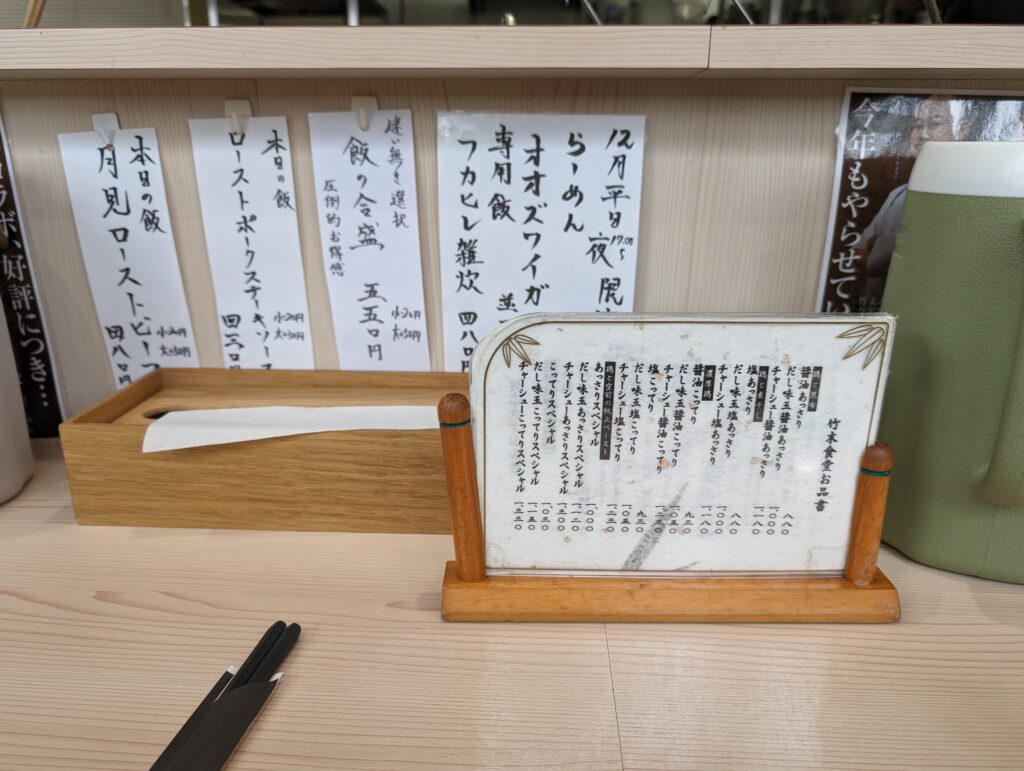 本日の飯
月見ローストビーフ
四八〇円
本日の飯
ローストポークステーキソース
四三〇円
縫い無き選択
飯の合盛 五五〇円
圧倒的お得感
12月平日夜限
17:00〜
らーめん
オオズワイガ
専用飯 並
フカヒレ雑炊 四八〇円
今年もやらせてい
コラボ、好評につき…
竹末食堂お品書
鶏と昆布
醤油あっさり 八八〇
だし味玉醤油あっさり 一〇〇〇
チャーシュー醤油あっさり 一一八〇
塩あっさり 八八〇
だし味玉塩あっさり 一〇〇〇
チャーシュー塩あっさり 一一八〇
濃厚鶏
醤油こってり 九三〇
だし味玉醤油こってり 一〇五〇
チャーシュー醤油こってり 一二三〇
塩こってり 九三〇
だし味玉塩こってり 一〇五〇
チャーシュー塩こってり 一二三〇
あっさりスペシャル 一〇〇〇
だし味玉あっさりスペシャル 一一二〇
チャーシューあっさりスペシャル 一三〇〇
こってりスペシャル 一〇三〇
だし味玉こってりスペシャル 一一五〇
チャーシューこってりスペシャル 一三三〇